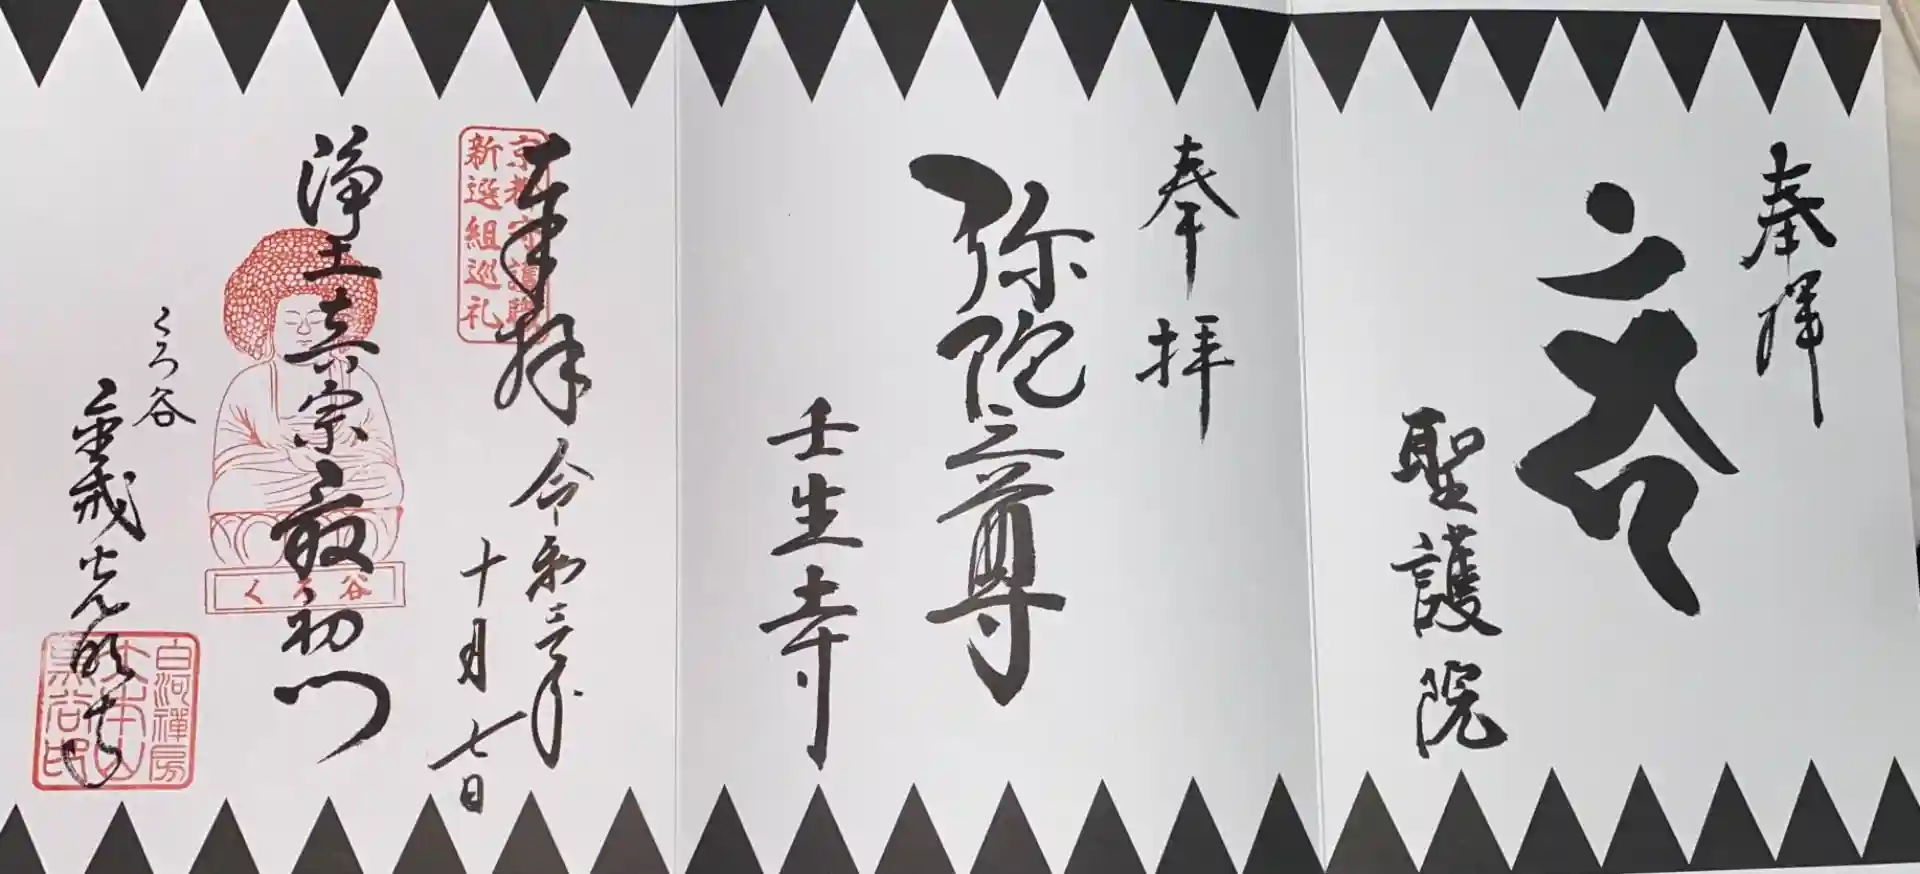 奉拝
聖護院
奉拝
弥陀三尊
壬生寺
奉拝 令和三年
十月七日
京都守護職
新選組巡礼
浄土真宗最初門
くろ谷
くろ谷
金戒光明寺
白河禅房
大本山
黒谷印